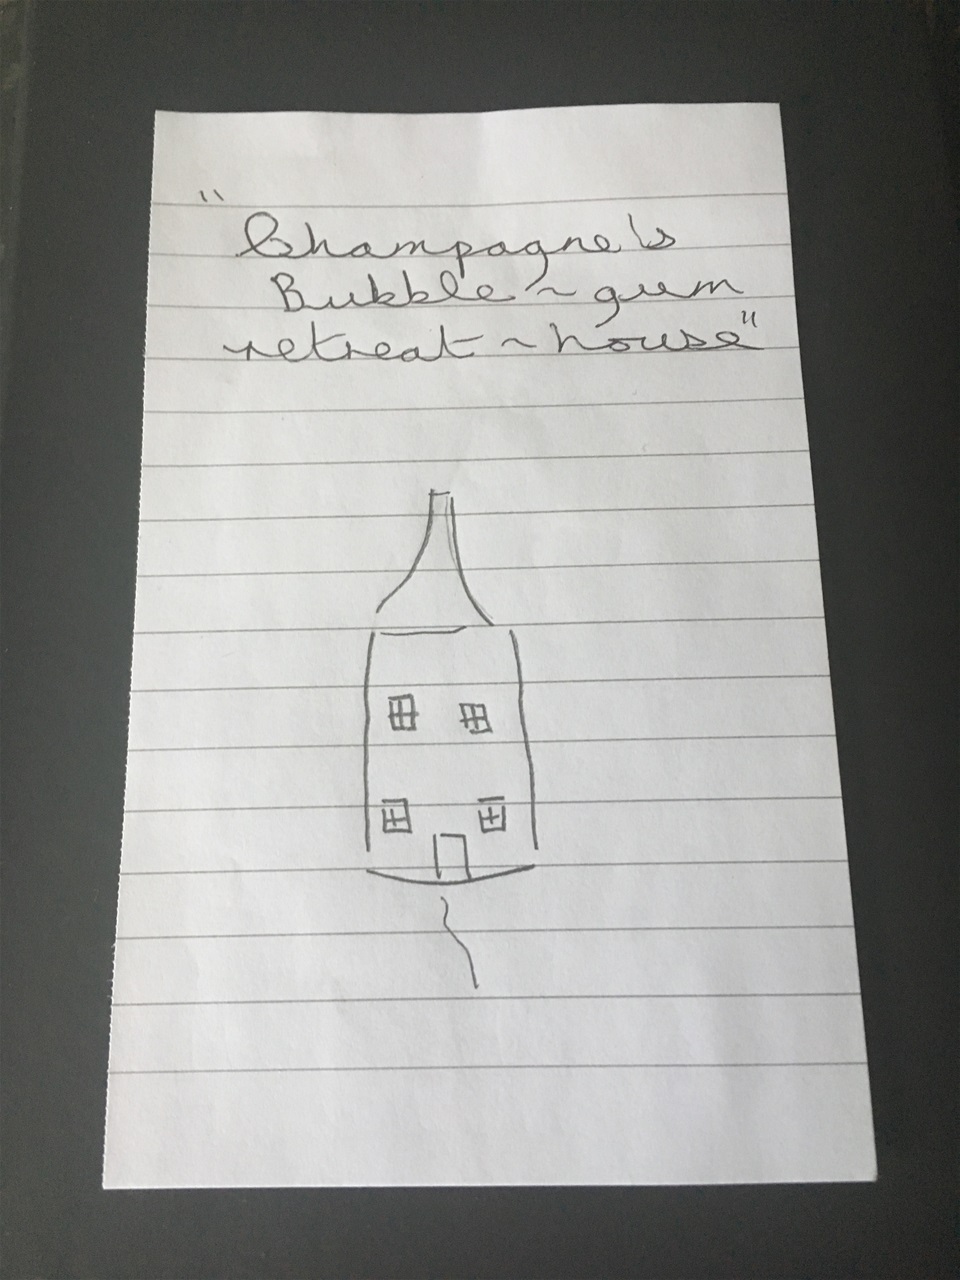 "Champagne's
Bubble~gum
retreat~house"